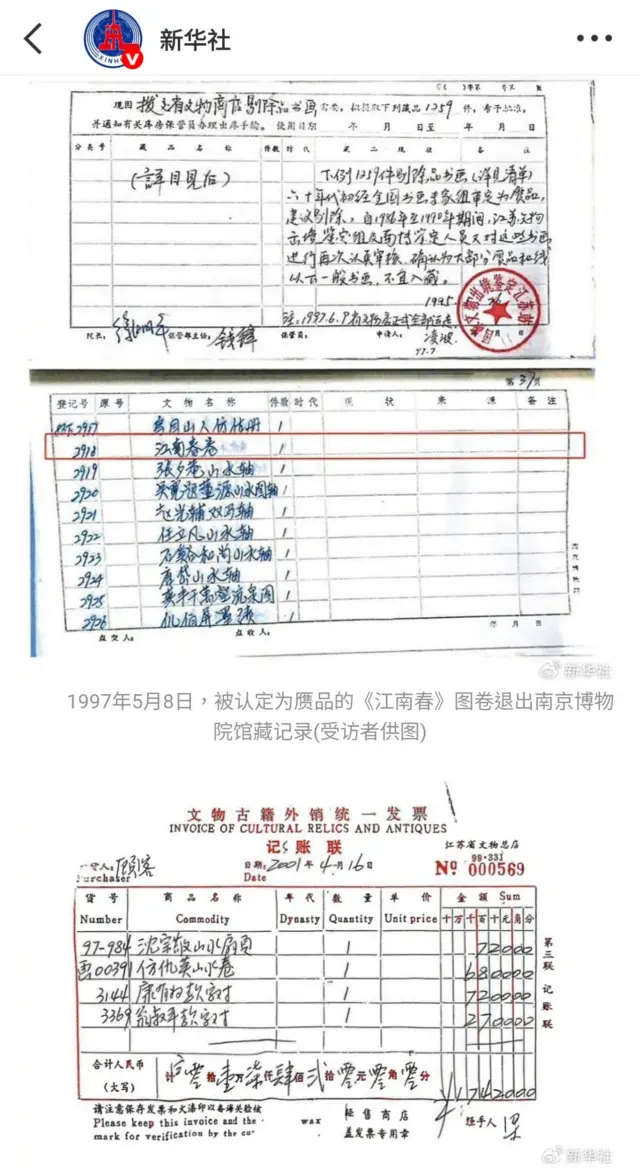 新华社
现因拨交省文物商店剔除品书画需要,拟提取下列藏品1259件,希予批准,
并通知有关库房保管员办理出库手续。使用日期 年 月 日至 年 月 日
分类号 藏品名称 件数 时代 藏品现状 备注
(详目见后)
下列1259件剔除品书画(详见清单)
六十年代初经全国书画专家组审定为赝品,
建议剔除。自1986年至1990年期间,江苏文物
出境鉴定组及南博鉴定人员又对这些书画
进行再次认真审核。确认为大部分赝品和线
以下一般书画,不宜入藏。
1995
院长: 保管部主任: 保管员: 申请人: 凌波
97.7
登记号 原号 文物名称 件数 时代 现状 来源 备注
2917 1
2918 江南春卷 1
2919 张夕庵山水轴 1
2920 1
2921 1
2922 任立凡山水轴 1
2923 石谿和尚山水轴 1
2924 唐岱山水轴 1
2925 1
2926 1
点交人: 点收人: 年 月 日
新华社
1997年5月8日,被认定为赝品的《江南春》图卷退出南京博物
院馆藏记录(受访者供图)
文物古籍外销统一发票
INVOICE OF CULTURAL RELICS AND ANTIQUES
记账联
江苏省文物总店
99·331
购货人:顾客
Purchaser
日期:2001年4月16日
Date
№ 000569
货号 商品名称 年代 数量 单价 金额 Sum
Number Commodity Dynasty Quantity Unit price 十万千百十元角分
97-984 沈宗敬山水扇页 1 72000
画00391 仿仇英山水卷 1 680000
3144 康有为款字对 1 720000
3369 翁叔平款字对 1 270000
合计人民币
(大写)
计零拾壹万柒仟肆佰贰拾零元零角零分 ¥1742000
第三联 记账联
请注意保存发票和火漆印以备海关验核
Please keep this invoice and the wax
mark for verification by the
经售商店
盖发票专用章
经手人 梁
新华社